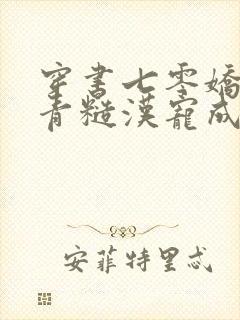 穿書七零嬌
青糙漢寵成
安菲特里忒